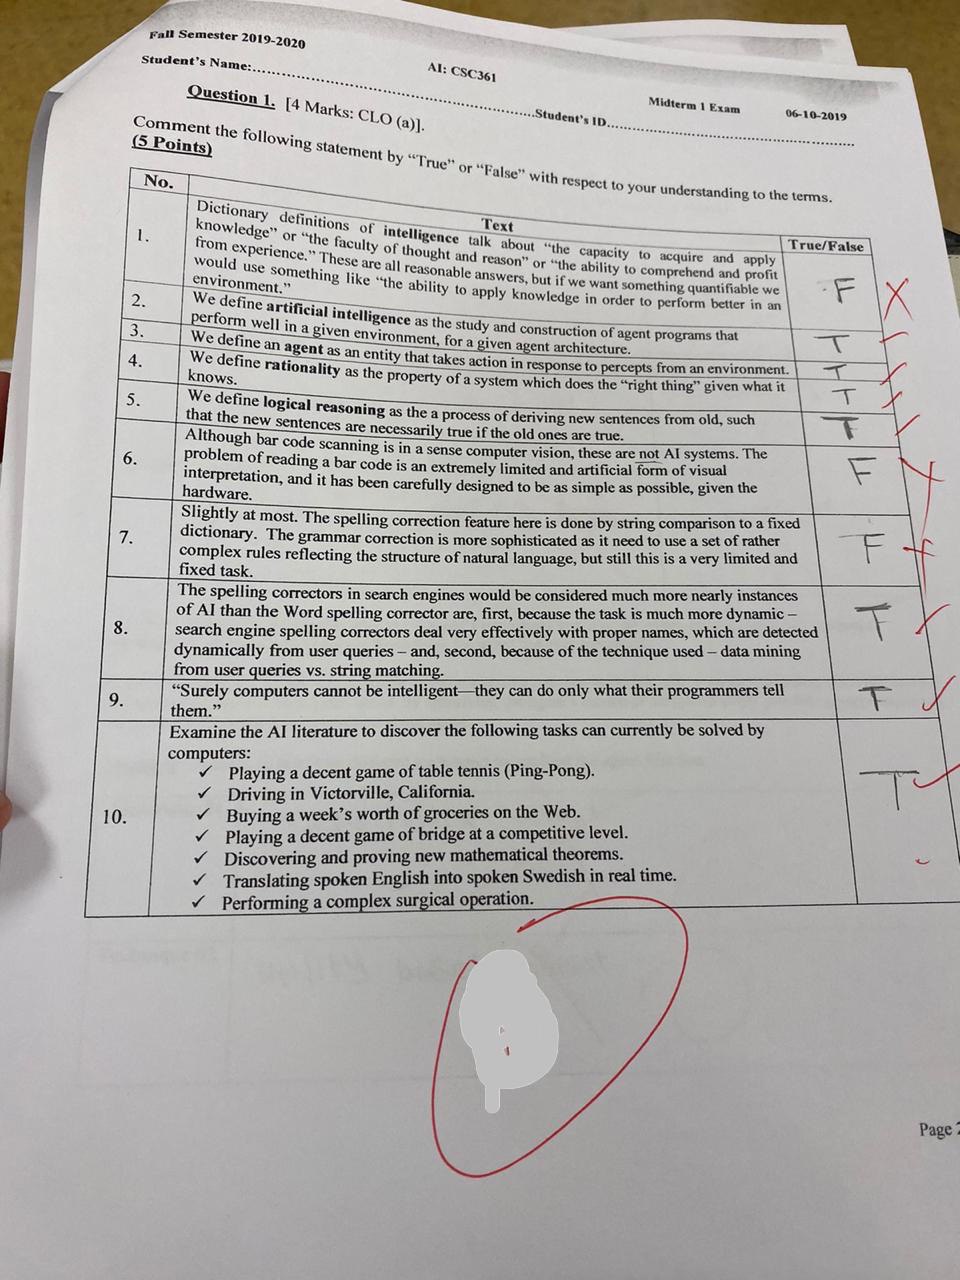 Fall Semester 2019-2020
AI: CSC361
Midterm 1 Exam
06-10-2019
Student's Name:..............................................................Student's ID.......................................................
Question 1. [4 Marks: CLO (a)].
Comment the following statement by "True" or "False" with respect to your understanding to the terms.
(5 Points)
No.
Text
True/False
1.
Dictionary definitions of intelligence talk about "the capacity to acquire and apply
knowledge" or "the faculty of thought and reason" or "the ability to comprehend and profit
from experience." These are all reasonable answers, but if we want something quantifiable we
would use something like "the ability to apply knowledge in order to perform better in an
environment."
F
2.
We define artificial intelligence as the study and construction of agent programs that
perform well in a given environment, for a given agent architecture.
T
3.
We define an agent as an entity that takes action in response to percepts from an environment.
T
4.
We define rationality as the property of a system which does the "right thing" given what it
knows.
T
5.
We define logical reasoning as the a process of deriving new sentences from old, such
that the new sentences are necessarily true if the old ones are true.
T
6.
Although bar code scanning is in a sense computer vision, these are not AI systems. The
problem of reading a bar code is an extremely limited and artificial form of visual
interpretation, and it has been carefully designed to be as simple as possible, given the
hardware.
F
7.
Slightly at most. The spelling correction feature here is done by string comparison to a fixed
dictionary. The grammar correction is more sophisticated as it need to use a set of rather
complex rules reflecting the structure of natural language, but still this is a very limited and
fixed task.
F
8.
The spelling correctors in search engines would be considered much more nearly instances
of AI than the Word spelling corrector are, first, because the task is much more dynamic –
search engine spelling correctors deal very effectively with proper names, which are detected
dynamically from user queries – and, second, because of the technique used – data mining
from user queries vs. string matching.
T
9.
"Surely computers cannot be intelligent—they can do only what their programmers tell
them."
T
10.
Examine the AI literature to discover the following tasks can currently be solved by
computers:
✓ Playing a decent game of table tennis (Ping-Pong).
✓ Driving in Victorville, California.
✓ Buying a week's worth of groceries on the Web.
✓ Playing a decent game of bridge at a competitive level.
✓ Discovering and proving new mathematical theorems.
✓ Translating spoken English into spoken Swedish in real time.
✓ Performing a complex surgical operation.
T
Page